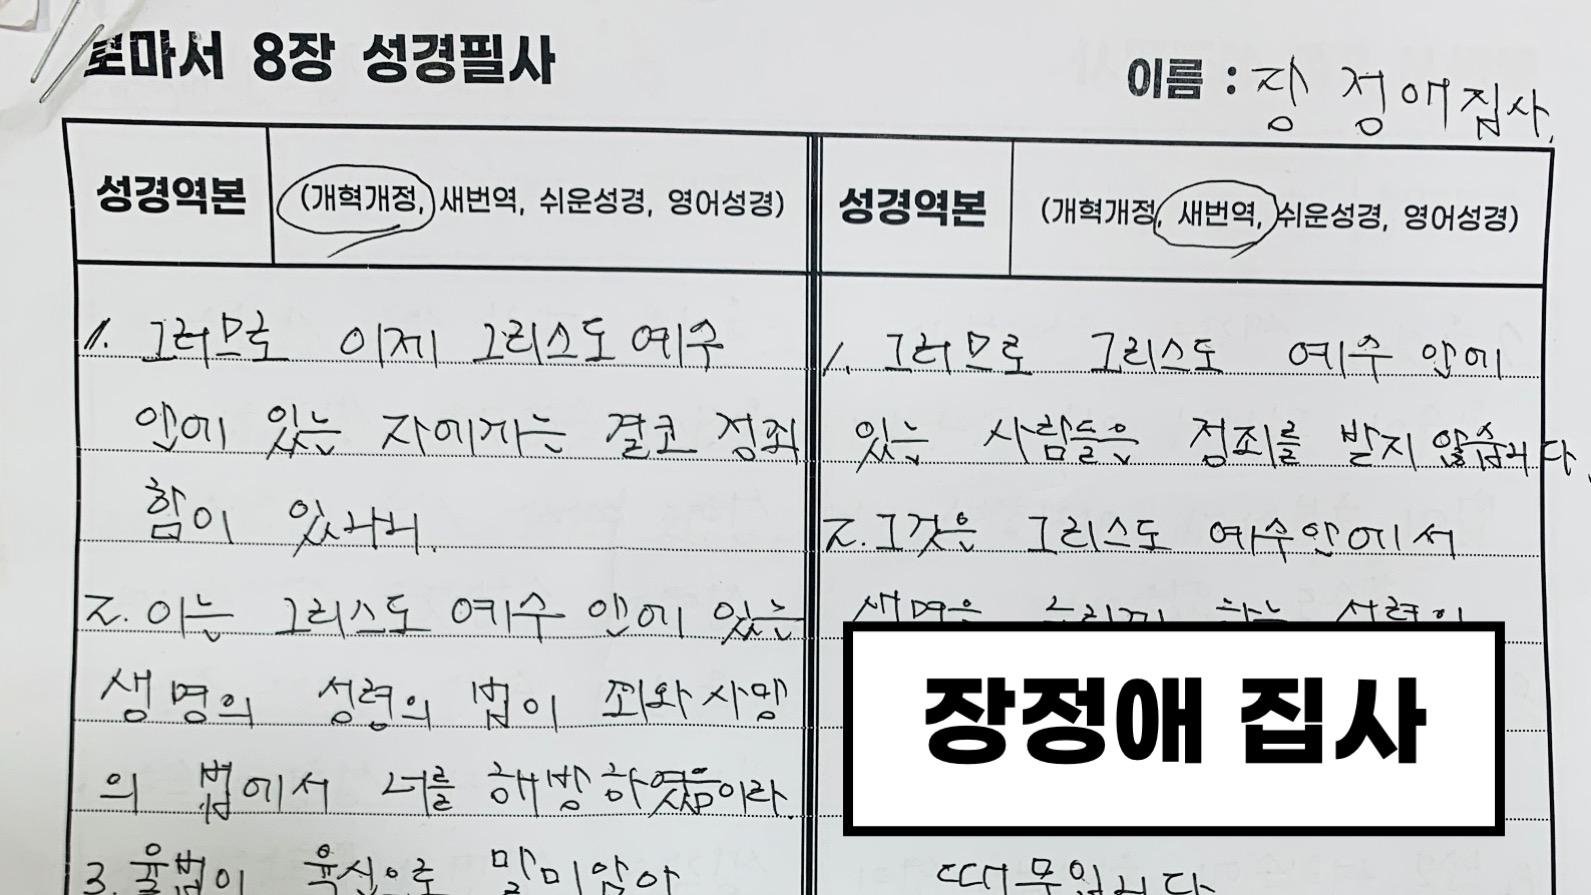 로마서 8장 성경필사
이름 : 장정애집사.
성경역본
(개혁개정, 새번역, 쉬운성경, 영어성경)
1. 그러므로 이제 그리스도 예수
안에 있는 자에게는 결코 정죄
함이 있나니.
2. 이는 그리스도 예수 안에 있는
생명의 성령의 법이 죄와 사망
의 법에서 너를 해방하였음이라.
3. 율법이 육신으로 말미암아
성경역본
(개혁개정, 새번역, 쉬운성경, 영어성경)
1. 그러므로 그리스도 예수 안에
있는 사람들은 정죄를 받지 않습니다.
2. 그것은 그리스도 예수안에서
생명을 누리게 하는 성령의
때문입니다
장정애 집사